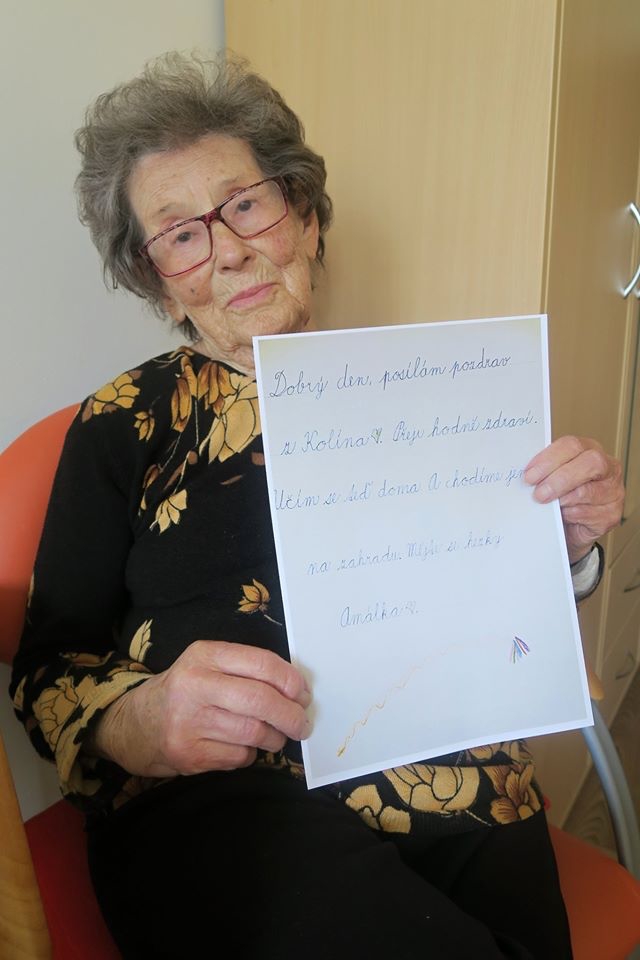 Dobrý den, posílám pozdrav
z Kolína. Přeji hodně zdraví.
Učím se teď doma. A chodíme jen
na zahradu. Mějte se hezky
Amálka.